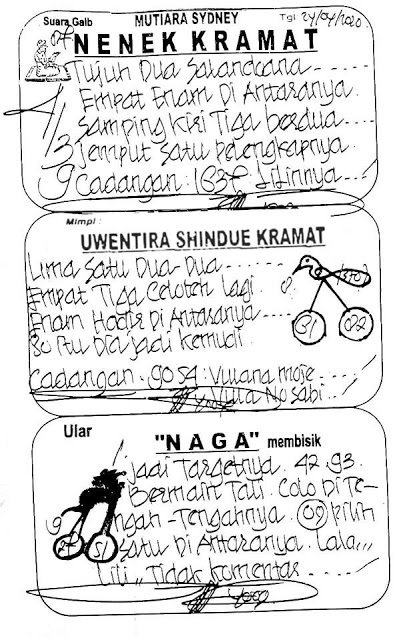 Suara Gaib
MUTIARA SYDNEY
Tgl: 24/04/2020
07
NENEK KRAMAT
Tujuh Dua Salandcana
Empat Enam Di Antaranya.
Samping Kiri Tiga berdua
Jemput Satu Pelengkapnya
Cadangan: 1637
4
1/3
9
Mimpi:
UWENTIRA SHINDUE KRAMAT
Lima Satu Dua-Dua
Empat Tiga Celoteh Lagi
Enam Hadir Di Antaranya
Dia Jadi Kemudi.
Cadangan. 9054:
8
31
02
Ular
"NAGA" membisik
Jadi Targetnya. 42.93.
Bermain Tali. Colo Di Te-
ngah-Tengahnya. 09 Pilih
Satu Di Antaranya. Lala,,,
Lili,, Tidak Komentar
9
51